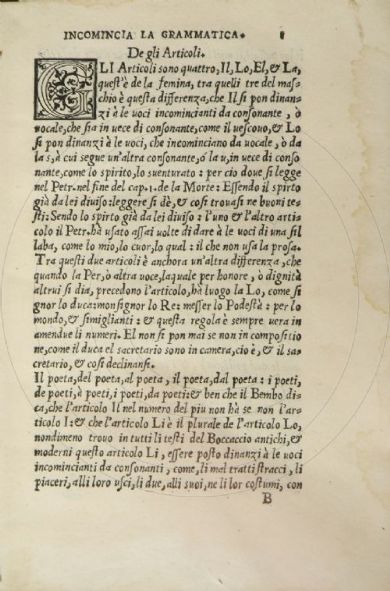 INCOMINCIA LA GRAMMATICA.
De gli Articoli.
GLI Articoli sono quattro, Il, Lo, El, & La,
quest'è de la femina, tra quelli tre del mas-
chio è questa differenza, che Il si pon dinan-
zi à le voci incomincianti da consonante, ò
vocale, che sia in vece di consonante, come il vescovo, & Lo
si pon dinanzi à le voci, che incominciano da vocale, ò da
la s, à cui segue un'altra consonante, ò la u, in vece di conso
nante, come lo spirito, lo sventurato: per cio dove si legge
nel Petr. nel fine del cap. 1. de la Morte: Essendo il spirto
già da lei diviso: leggere si dè, & cosi trovasi ne buoni te-
sti: Sendo lo spirto già da lei diviso: l'uno & l'altro artic
colo il Petr. hà usato assai volte di dare à le voci di una sil
laba, come lo mio, lo cuor, lo qual: il che non usa la prosa.
Tra questi due articoli è anchora un'altra differenza, che
quando la Per, ò altra voce, laquale per honore, ò dignità
altrui si dia, precedono l'articolo, hà luogo la Lo, come si
gnor lo duca: monsignor lo Re: messer lo Podestà: per lo
mondo, & simiglianti: & questa regola è sempre vera in
amendue li numeri. El non si pon mai se non in compositio
ne, come il duca el sacretario sono in camera, cio è, & il sa-
cretario, & cosi declinansi.
Il poeta, del poeta, al poeta, il poeta, dal poeta: i poeti,
de poeti, è poeti, i poeti, da poeti: & ben che il Bembo di-
ca, che l'articolo Il nel numero del piu non hà se non l'ar-
ticolo I: & che l'articolo Li è il plurale de l'articolo Lo,
nondimeno trovo in tutti li testi del Boccaccio antichi, &
moderni questo articolo Li, essere posto dinanzi à le voci
incomincianti da consonanti, come, li mal tratti stracci, li
piaceri, alli loro usci, li due, alli suoi, ne li lor costumi, con
B